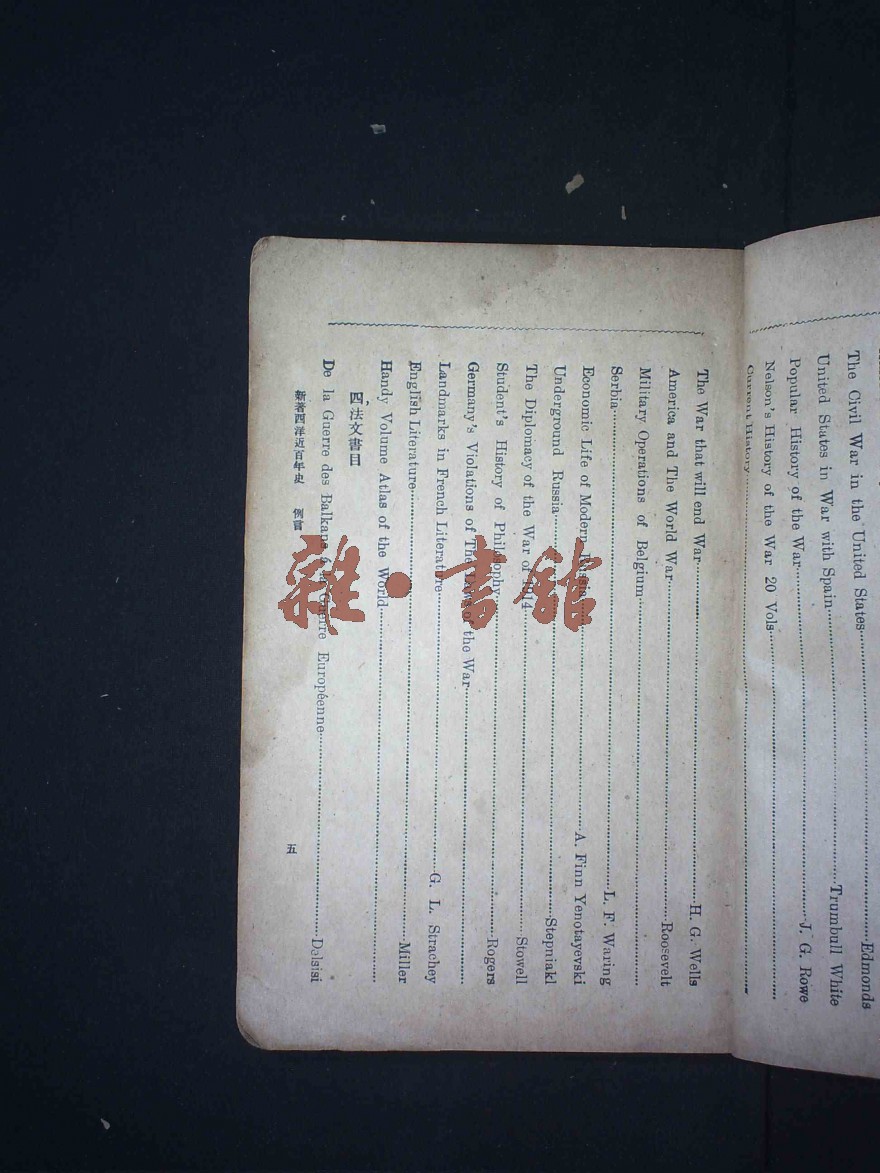 The Civil War in the United States Edmonds
United States in War with Spain Trumbull White
Popular History of the War J. G. Rowe
Nelson's History of the War 20 Vols
Current History
The War that will end War H. G. Wells
America and The World War Roosevelt
Military Operations of Belgium
Serbia L. F. Waring
Economic Life of Modern Russia A. Finn Yenotayevski
Underground Russia Stepniakl
The Diplomacy of the War of 1914 Stowell
Student's History of Philosophy Rogers
Germany's Violations of The Laws of the War
Landmarks in French Literature G. L. Strachey
English Literature Miller
Handy Volume Atlas of the World
四、法文書目
De la Guerre des Balkans á la Guerre Européenne Delsisi
新著西洋近百年史 例言 五
雜·書館